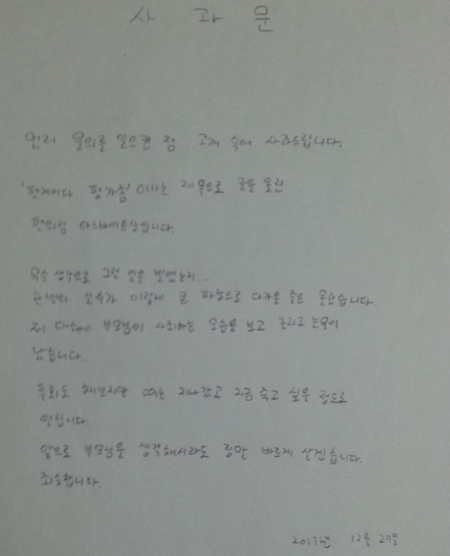 사 과 문
먼저 물의를 일으킨 점 고개 숙여 사과드립니다.
이라는 제목으로 글을 올린
편의점 아르바이트생입니다.
무슨 생각으로 그런 일을 벌였는지...
한번의 실수가 이렇게 큰 파장으로 다가올 줄은 몰랐습니다.
저 대신에 부모님이 사죄하는 모습을 보고 눈물이
났습니다.
후회도 해보지만 때는 지나갔고 지금 죽고 싶을 정도로
떨립니다.
앞으로 부모님을 생각해서라도 정말 바르게 살겠습니다.
죄송합니다.
2013년 12월 29일